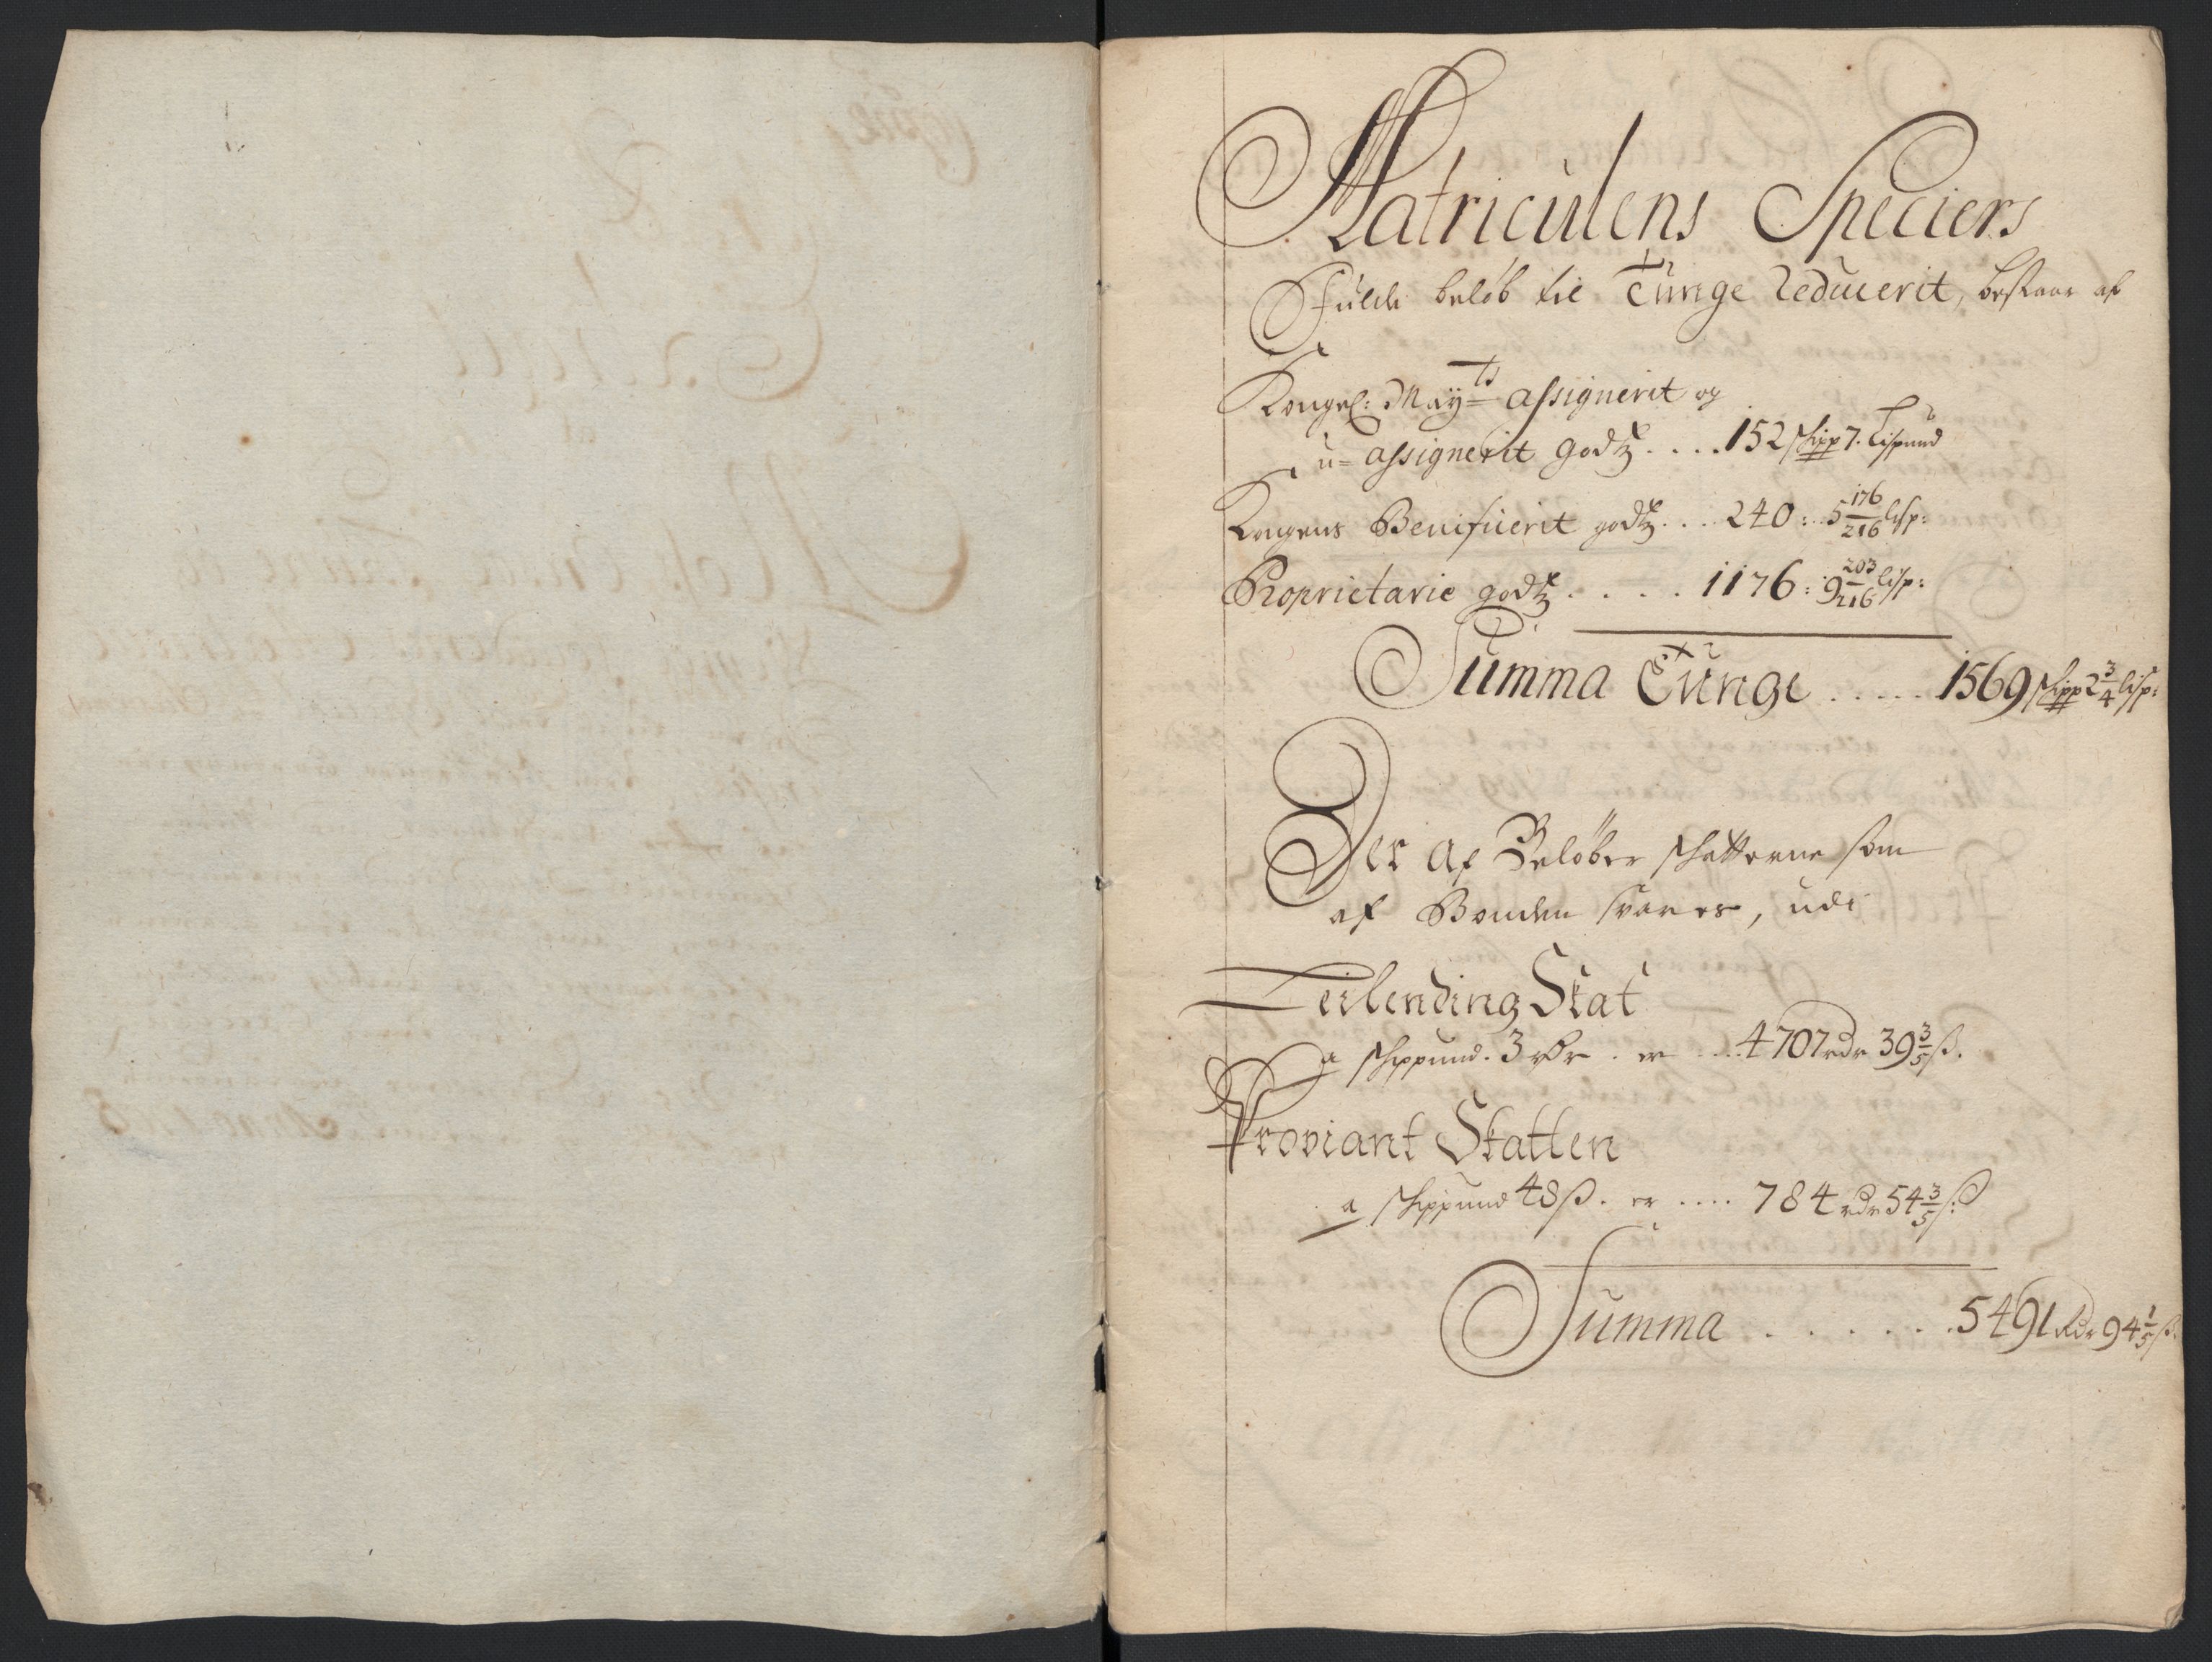 Matriculens Speciers
Fulde beløb til Tunge Reducerit, bestaar af
Kongel: May^ts assignerit og
u= assignerit godtz....152 skipp 7. Lispund
Kongens Benificerit godtz...240:.5 176/216 lisp:
Proprietarie godtz.....1176: 9 203/216 lisp:
Summa Tunge.....1569 skipp 2 3/4 lisp:
Der af Beløber skatterne som
af Bonden svares, udi
Leilending Skat
a skippund. 3 rdr. er ...4707 rdr 39 3/5 ß.
Proviant Skatten
a skippund 48 ß. er .... 784 rdr 54 3/5 ß:
Summa.......5491 Rdr 94 1/5 ß.